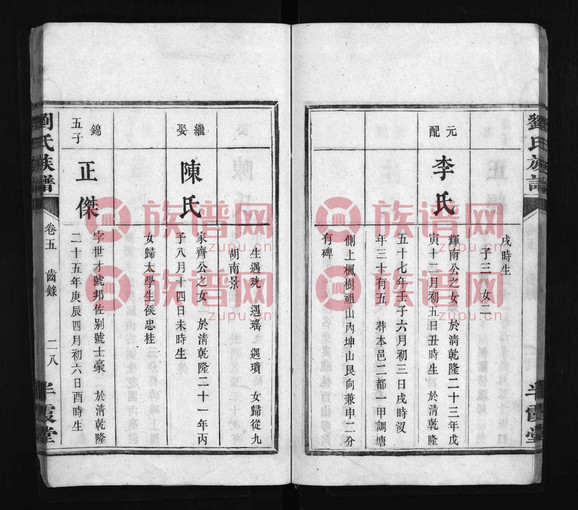 劉氏族譜
半霞堂
戌時生
子三 女二
元配
李氏
輝南公之女 於清乾隆二十三年戊
寅十二月初五日丑時生 於清乾隆
五十七年壬子六月初三日戌時沒
年三十有五 葬本邑二都一甲調塘
側上楓樹祖山內坤山艮向兼申二分
有碑
生遇珖 遇璚 遇瓆 女歸從九
胡南景
繼娶
陳氏
家齊公之女 於清乾隆二十一年丙
子八月十四日未時生
女歸太學生侯忠桂
錦五子
正傑
字世才號邦佐别號士豪 於清乾隆
二十五年庚辰四月初六日酉時生
劉氏族譜
卷五 齒錄
二八
半霞堂
族谱网
zupu.cn
族谱网
zupu.cn
族谱网
zupu.cn
族谱网
zupu.cn